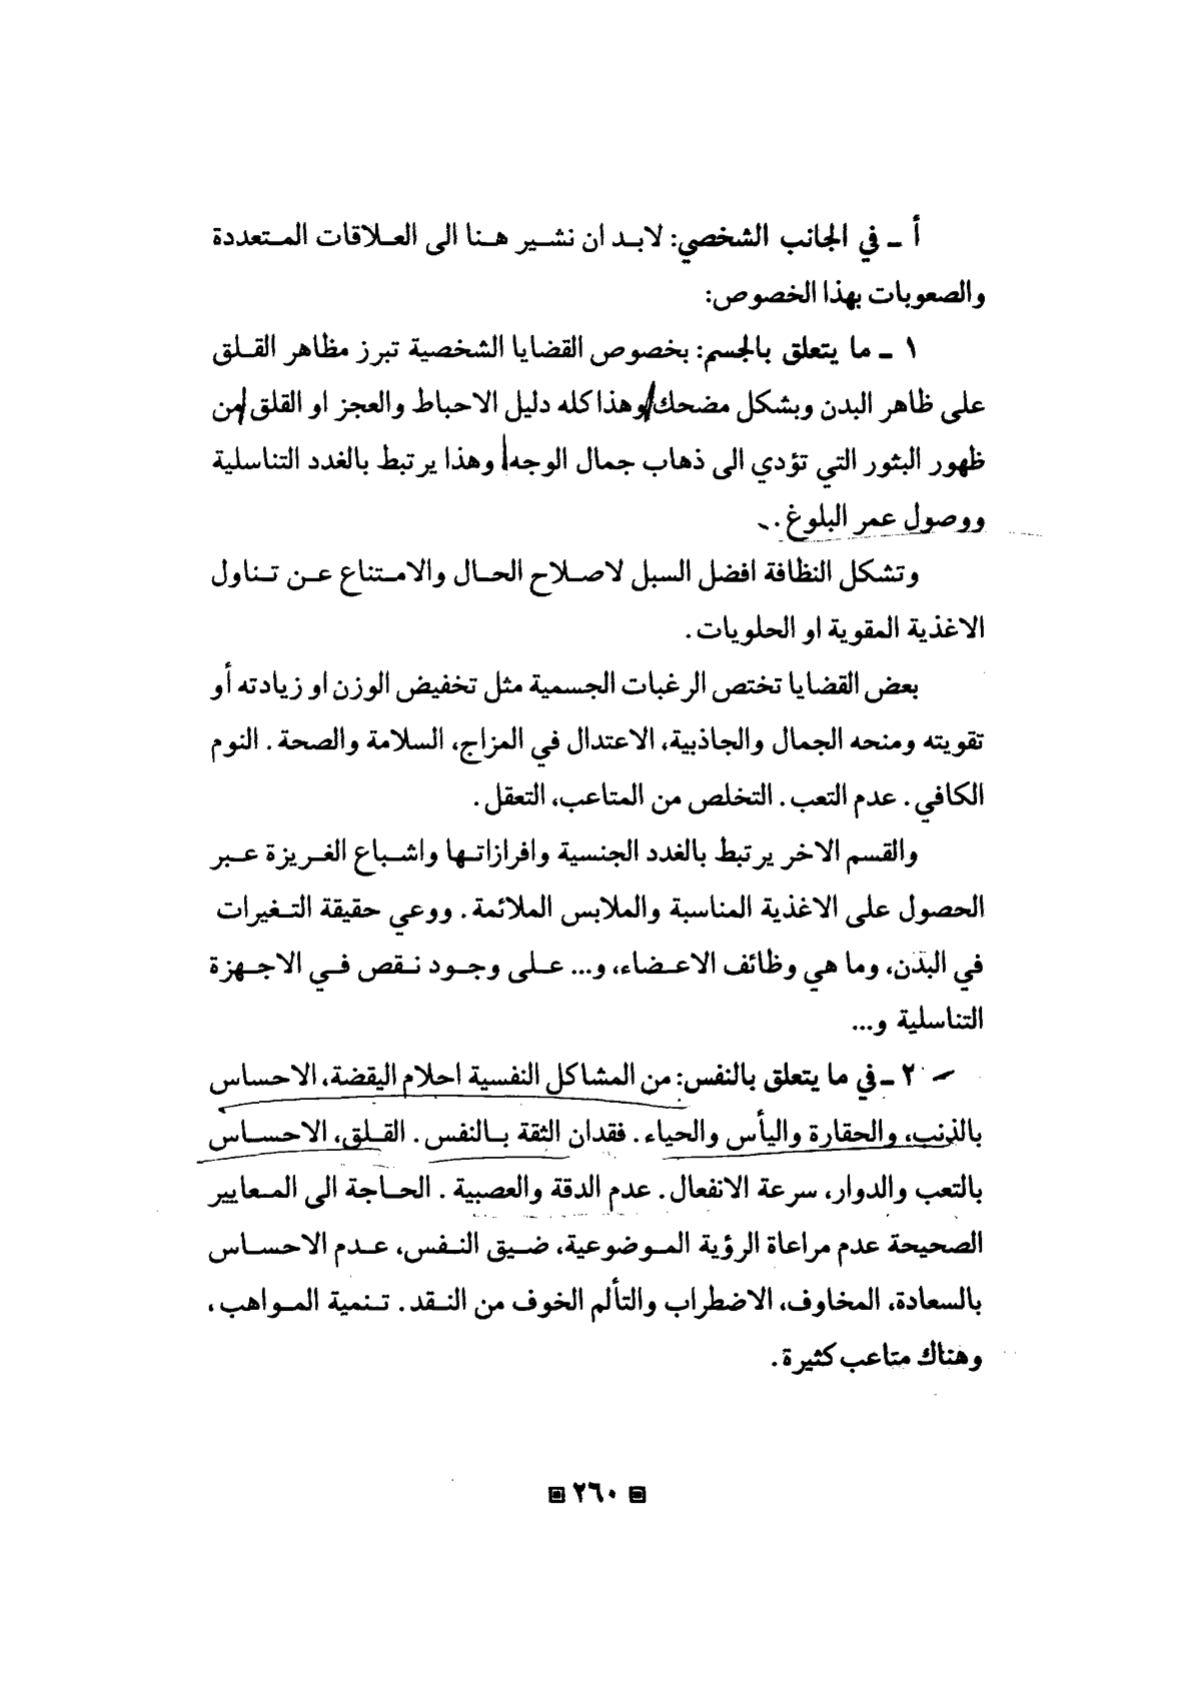 أ ـ في الجانب الشخصي: لابد ان نشير هنا الى العلاقات المتعددة
والصعوبات بهذا الخصوص:
١ ـ ما يتعلق بالجسم: بخصوص القضايا الشخصية تبرز مظاهر القلق
على ظاهر البدن وبشكل مضحك وهذا كله دليل الاحباط والعجز او القلق من
ظهور البثور التي تؤدي الى ذهاب جمال الوجه وهذا يرتبط بالغدد التناسلية
ووصول عمر البلوغ.
وتشكل النظافة افضل السبل لاصلاح الحال والامتناع عن تناول
الاغذية المقوية او الحلويات.
بعض القضايا تختص الرغبات الجسمية مثل تخفيض الوزن او زيادته أو
تقويته ومنحه الجمال والجاذبية، الاعتدال في المزاج، السلامة والصحة. النوم
الكافي. عدم التعب. التخلص من المتاعب، التعقل.
والقسم الاخر يرتبط بالغدد الجنسية وافرازاتها واشباع الغريزة عبر
الحصول على الاغذية المناسبة والملابس الملائمة. ووعي حقيقة التغيرات
في البدن، وما هي وظائف الاعضاء، و... على وجود نقص في الاجهزة
التناسلية و...
٢ ـ في ما يتعلق بالنفس: من المشاكل النفسية احلام اليقضة، الاحساس
بالذنب، والحقارة واليأس والحياء. فقدان الثقة بالنفس. القلق، الاحساس
بالتعب والدوار، سرعة الانفعال. عدم الدقة والعصبية. الحاجة الى المعايير
الصحيحة عدم مراعاة الرؤية الموضوعية، ضيق النفس، عدم الاحساس
بالسعادة، المخاوف، الاضطراب والتألم الخوف من النقد. تنمية المواهب،
وهناك متاعب كثيرة.
٢٦٠